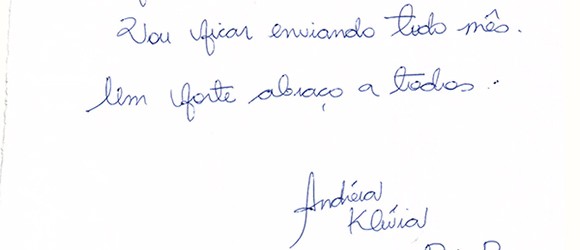 Vou ficar enviando todo mês.
Um forte abraço a todos.
Andréia
Klívia